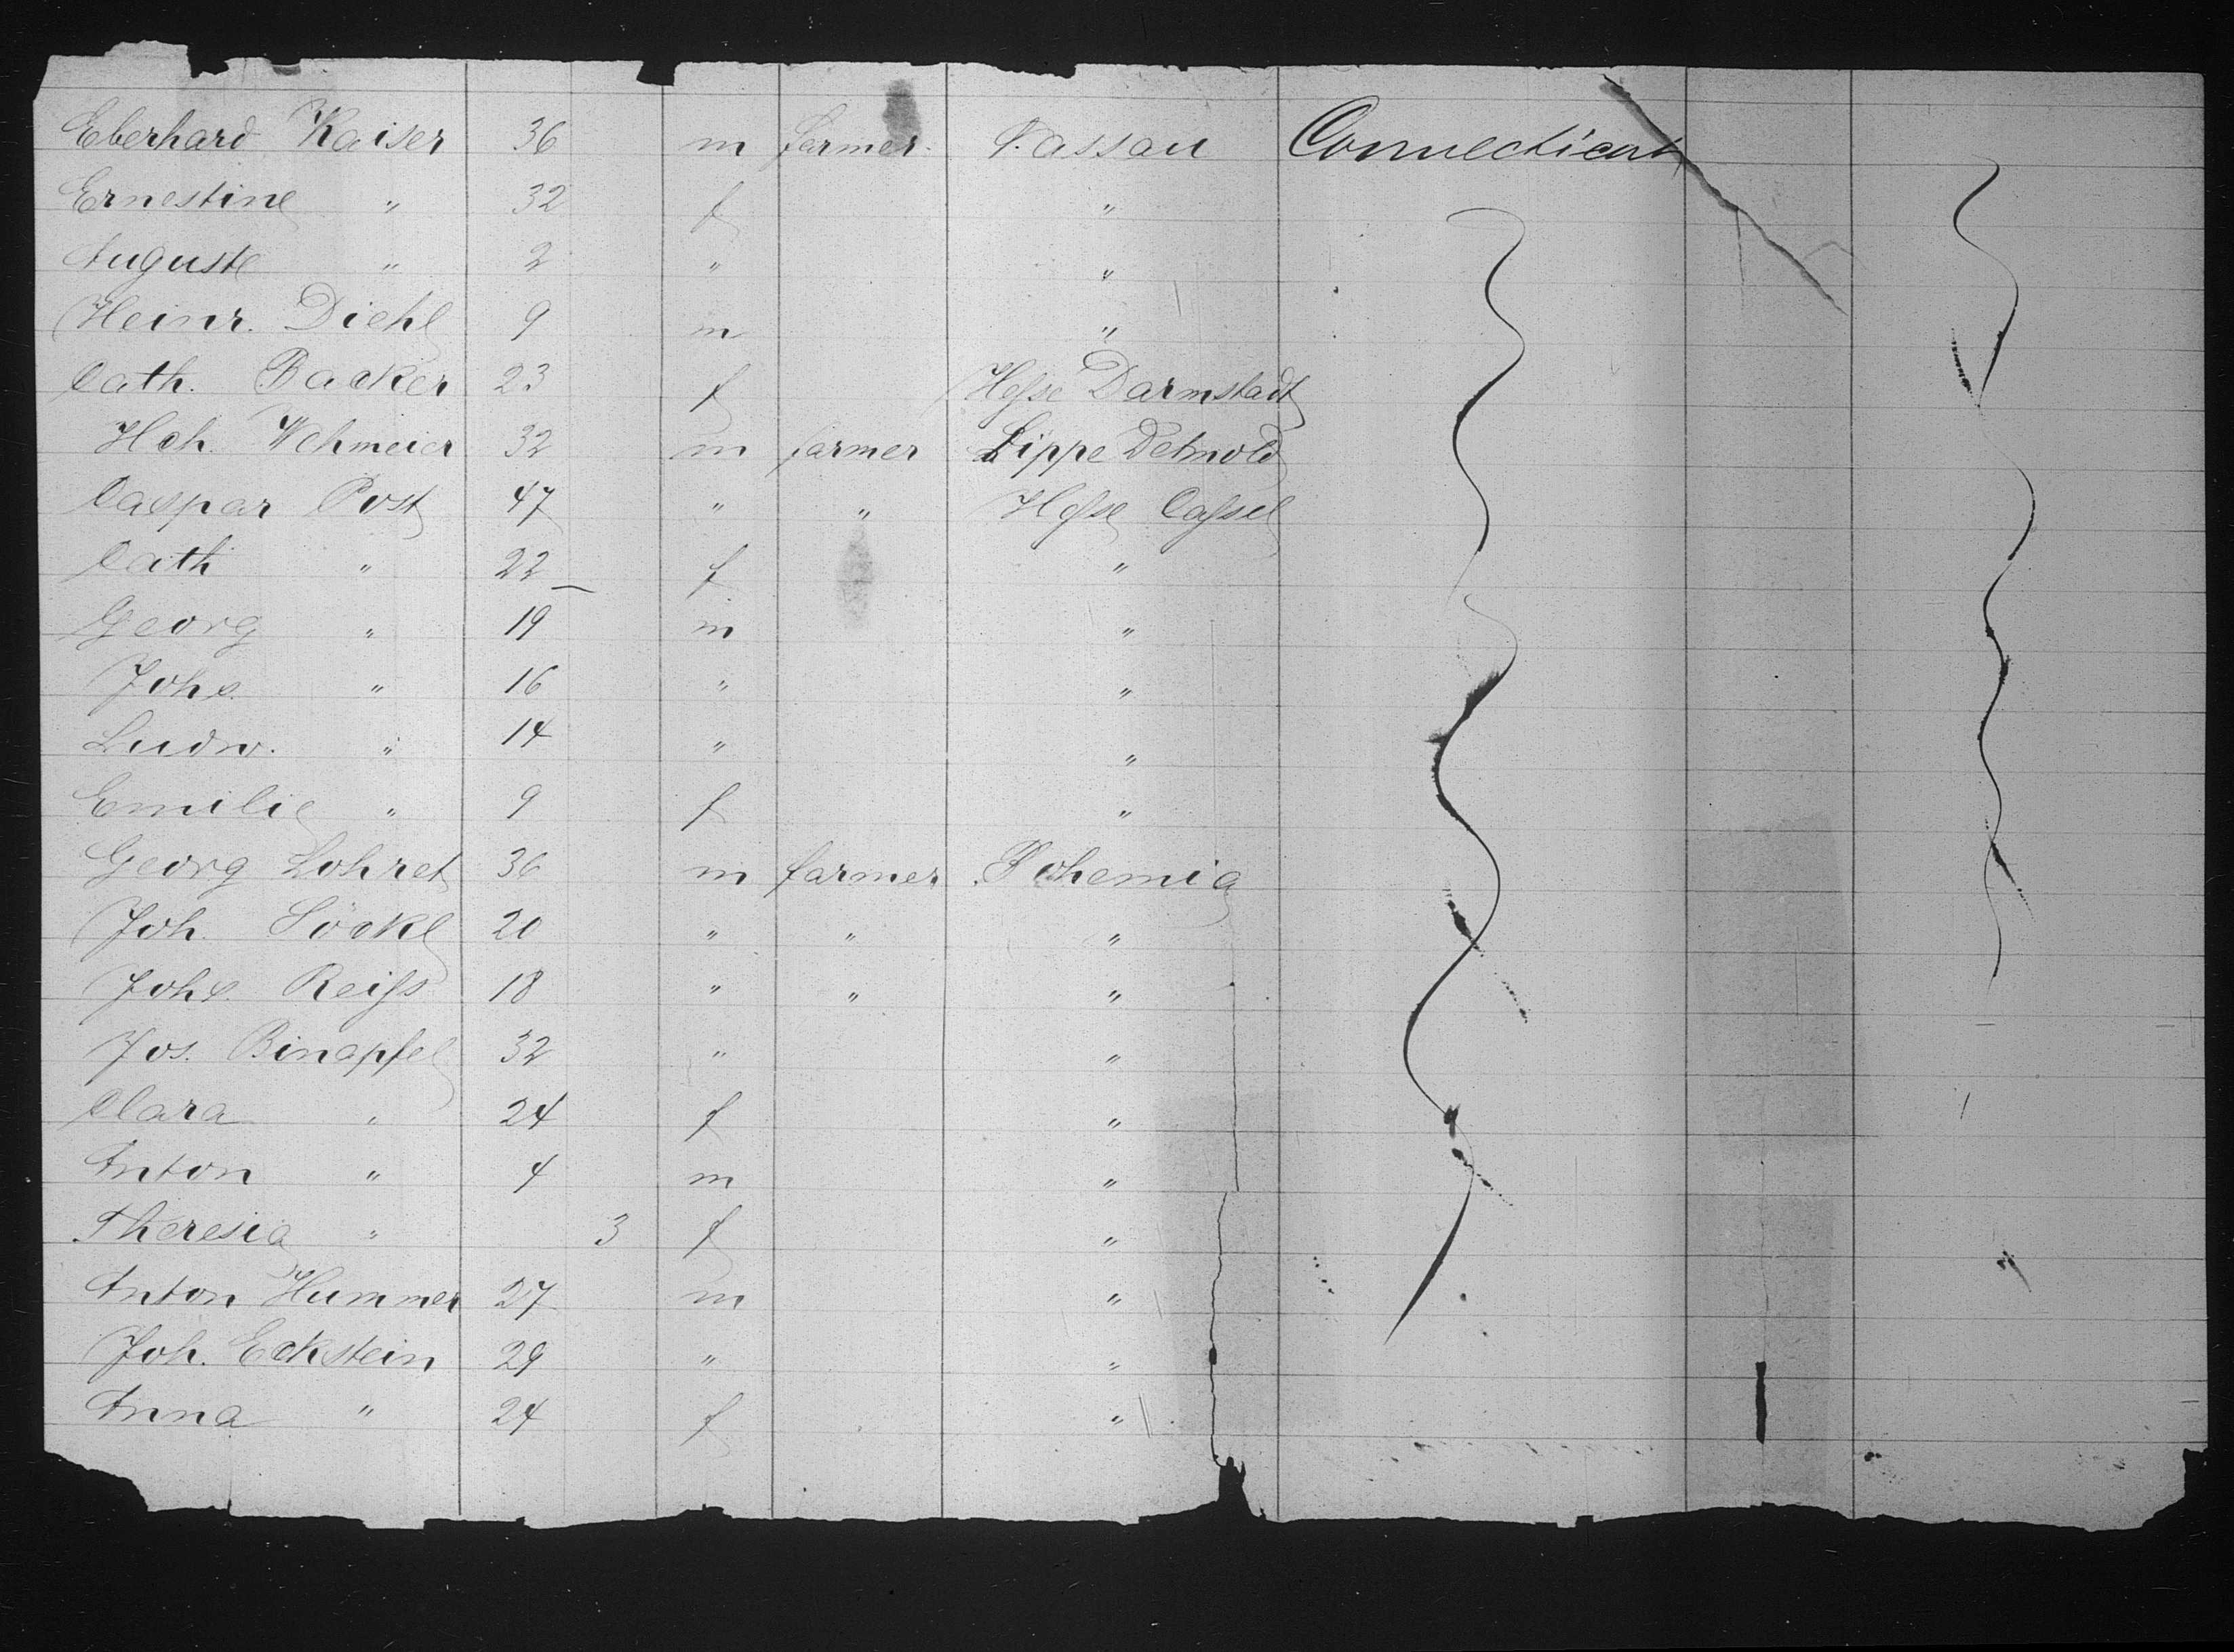 Eberhard Kaiser 36 m farmer Nassau Connecticut
Ernestine " 32 f "
Auguste " 2 " "
Heinr. Diehl 9 m "
Cath. Backer 23 f Hesse Darmstadt
Hch. Wehmeier 32 m farmer Lippe Detmold
Caspar Post 47 " " Hesse Cassel
Cath " 22 f "
Georg " 19 m "
Johs. " 16 " "
Ludw. " 14 " "
Emilie " 9 f "
Georg Lohret 36 m farmer Bohemia
Joh. Söckl 20 " " "
Johs. Reiss 18 " " "
Jos. Binapfel 32 " "
Clara " 24 f "
Anton " 4 m "
Theresia " 3 f "
Anton Hummer 27 m "
Joh. Eckstein 29 " "
Anna " 24 f "